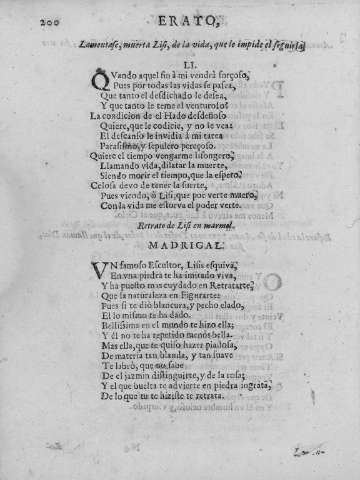 200 ERATO,
Lamentase, muerta Lisi, de la vida, que le impide el seguirla.
LI.
QVando aquel fin à mi vendrà forçoso,
Pues por todas las vidas se passea,
Que tanto el desdichado le desea,
Y que tanto le teme el venturoso?
La condicion de el Hado desdeñoso
Quiere, que le codicie, y no le vea:
El descanso le invidia à mi tarea
Parasismo, y sepulcro pereçoso.
Quiere el tiempo vengarme lisongero,
Llamando vida, dilatar la muerte,
Siendo morir el tiempo, que la espero.
Celosa devo de tener la suerte,
Pues viendo, ò Lisi, que por verte muero,
Con la vida me estorva el poder verte.
Retrato de Lisi en marmol.
MADRIGAL.
VN famoso Escultor, Lisis esquiva,
En vna piedra te ha imitado viva,
Y ha puesto mas cuydado en Retratarte,
Que la naturaleza en Figurarte:
Pues si te diò blancura, y pecho elado,
El lo mismo te ha dado.
Bellissima en el mundo te hizo ella;
Y él no te ha repetido menos bella.
Mas ella, que te quiso hazer piadosa,
De materia tan blanda, y tan suave
Te labrò, que no sabe
De el jazmin distinguirte, y de la rosa;
Y el que buelta te advierte en piedra ingrata,
De lo que tu te hiziste te retrata.